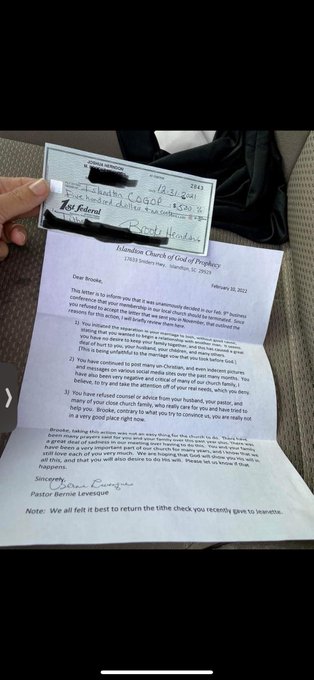 JOSHUA HERNDON
2843
12-31-2021
Islandton COGOP $500
Five hundred dollars
1st federal
Tithe Brooke Herndon
Islandton Church of God of Prophecy
17633 Sniders Hwy. Islandton, SC 29929
February 10, 2022
Dear Brooke,
This letter is to inform you that it was unanimously decided in our Feb. 9th business
conference that your membership in our local church should be terminated. Since
you refused to accept the letter that we sent you in November, that outlined the
reasons for this action, I will briefly review them here.
1) You initiated the separation in your marriage to Josh, without good cause,
stating that you wanted to begin a relationship with another man. It seems
you have no desire to keep your family together, and this has caused a great
deal of hurt to you, your husband, your children, and many others.
(This is being unfaithful to the marriage vow that you took before God.)
2) You have continued to post many un-Christian, and even indecent pictures
and messages on various social media sites over the past many months. You
have also been very negative and critical of many of our church family, I
believe, to try and take the attention off of your real needs, which you deny.
3) You have refused counsel or advice from your husband, your pastor, and
many of your close church family, who really care for you and have tried to
help you. Brooke, contrary to what you try to convince us, you are really not
in a very good place right now.
Brooke, taking this action was not an easy thing for the church to do. There have
been many prayers said for you and your family over this past year, also, there was
a great deal of sadness in our meeting over having to do this. You and your family
have been a very important part of our church for many years, and I know that we
still love each of you very much. We are hoping that God will show you His will in
all this, and that you will also desire to do His will. Please let us know if that
happens.
Sincerely,
Bernie Levesque
Pastor Bernie Levesque
Note: We all felt it best to return the tithe check you recently gave to Jeanette.